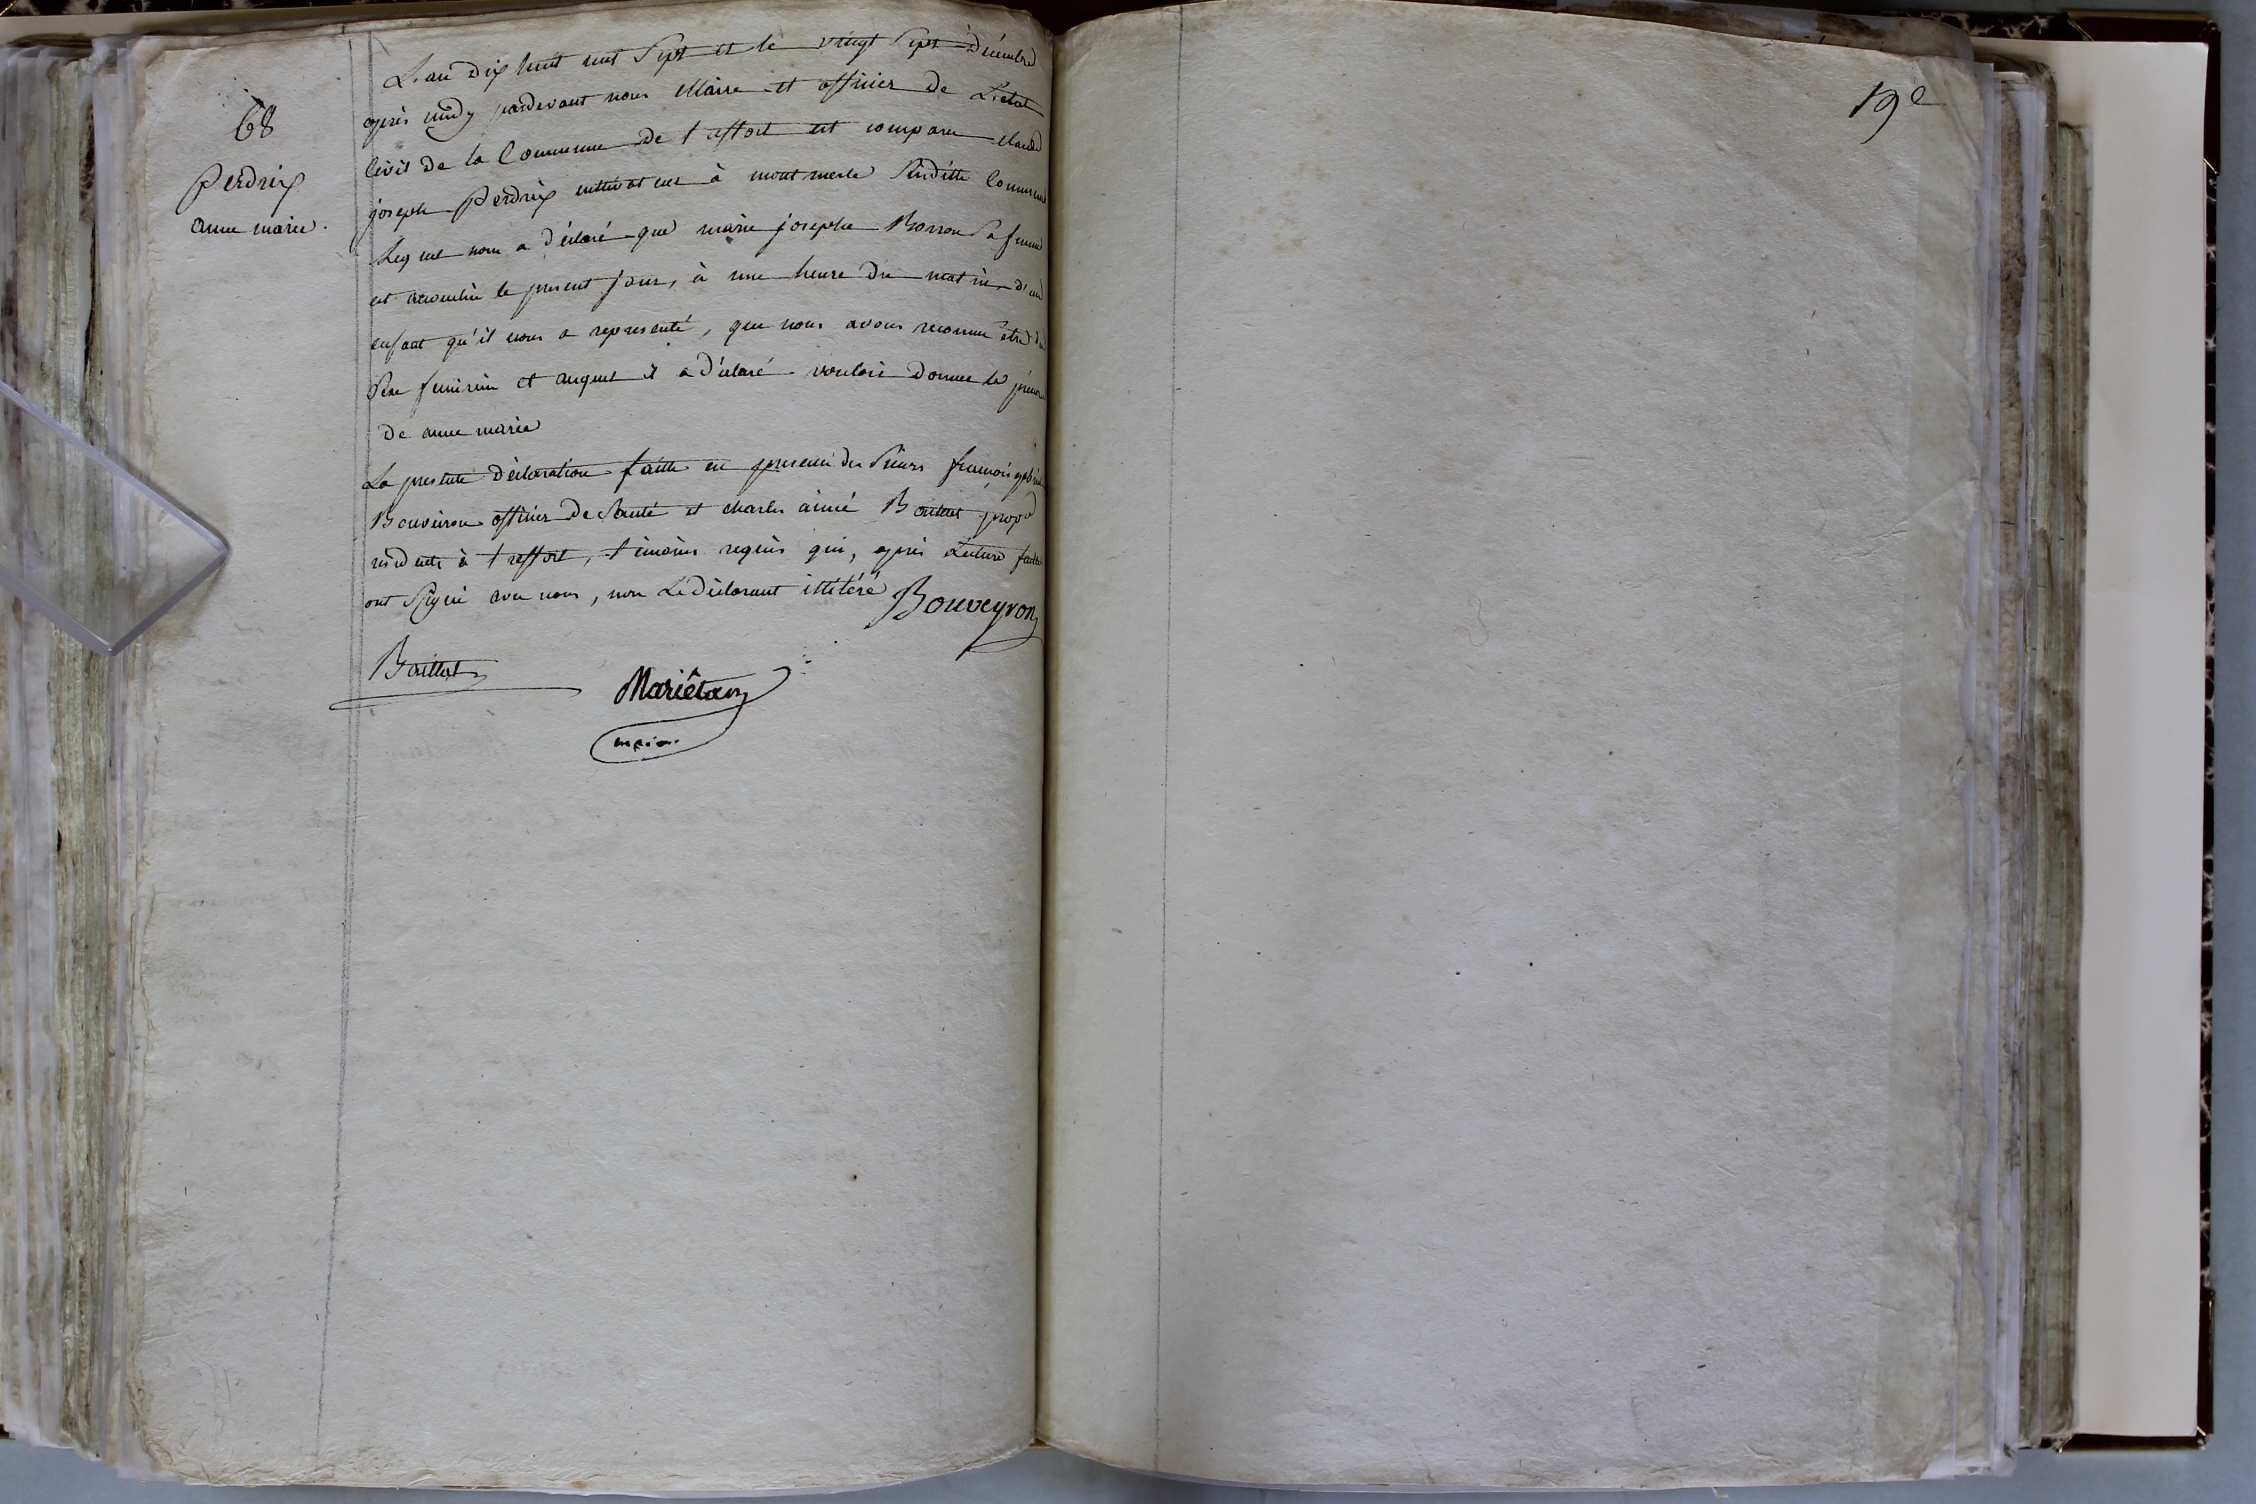 68
Perdrix
anne marie.
L'an dix huit cent Sept et le vingt Sept Décembre
après midy pardevant nous Maire et officier de L'etat
Civil de la Commune de treffort est comparu claude
joseph Perdrix cultivateur à mont merle Susditte Commune
Lequel nous a déclaré que marie josephe Borron Sa femme
est accouchée le present jour, à une heure du matin, d'un
enfant qu'il nous a representé, que nous avons reconnu être du
Sexe feminin et auquel il a déclaré vouloir donner le prénom
de anne marie
La presente déclaration faitte en presence des Sieurs françois
Bouveiron officier De Santé et charles aimé Boullat prop.
residents à treffort, témoins requis qui, après Lecture faitte
ont Signé avec nous, non Le Déclarant illitéré Bouveyron
Marietan
maire
19e